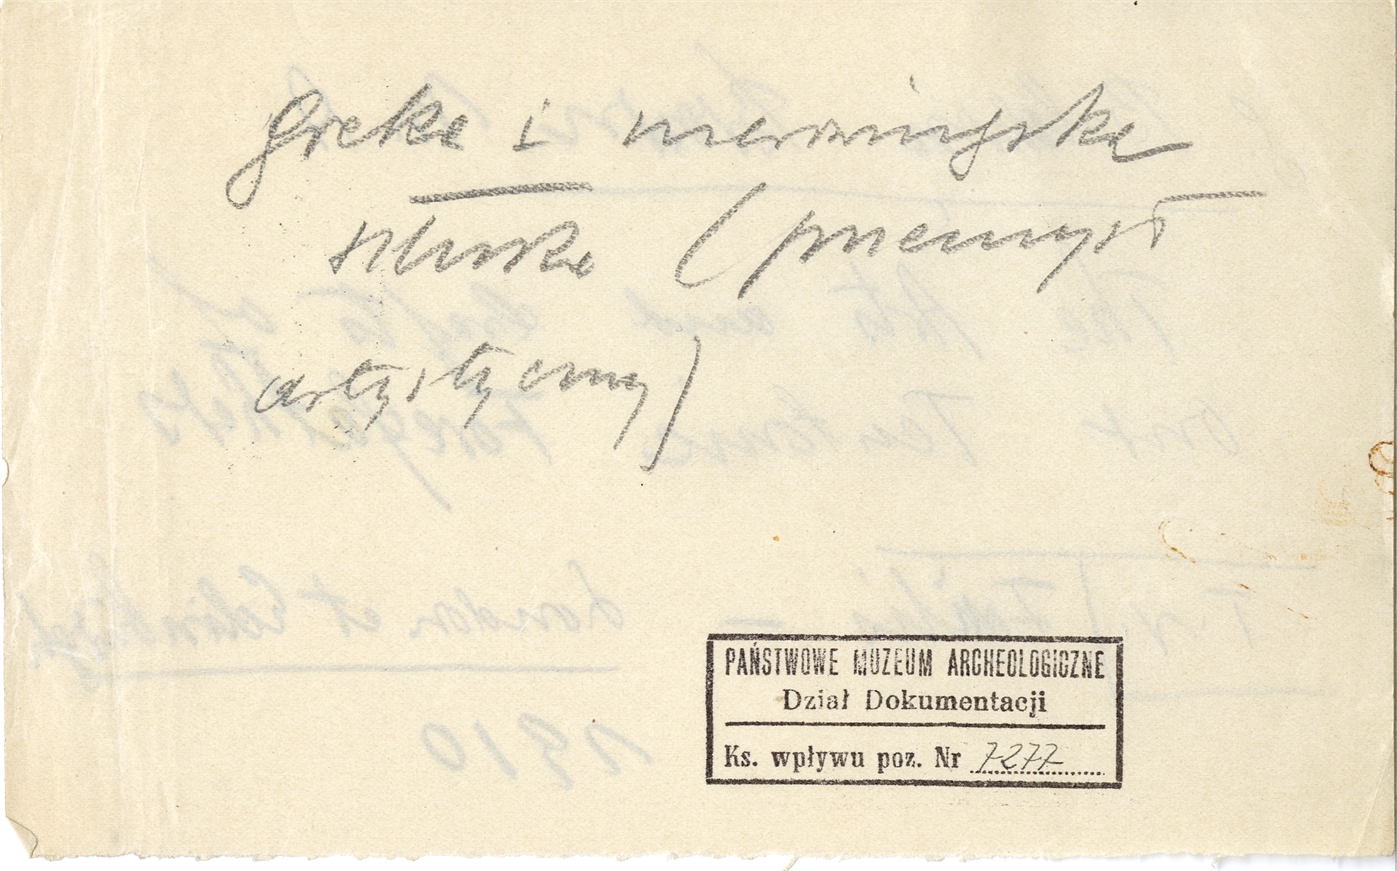 Gocka i merowingska
sztuka (przemysł
artystyczny)
PAŃSTWOWE MUZEUM ARCHEOLOGICZNE
Dział Dokumentacji
Ks. wpływu poz. Nr 7277